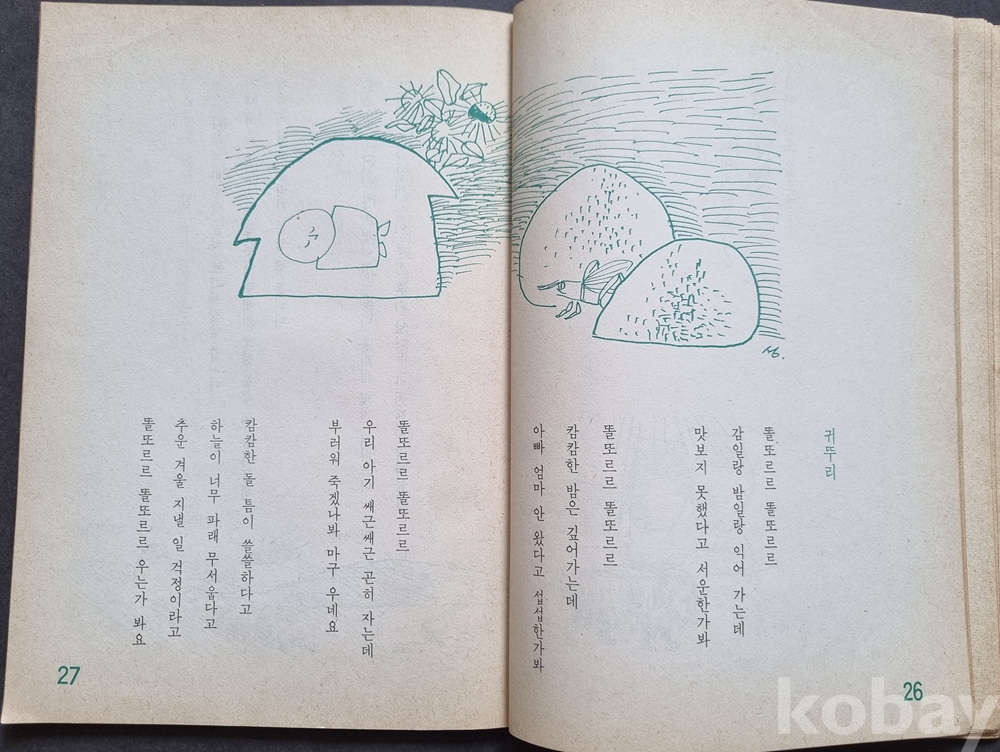 귀뚜리
똘또르르 똘또르르
감일랑 밤일랑 익어 가는데
맛보지 못했다고 서운한가봐
똘또르르 똘또르르
캄캄한 밤은 깊어가는데
아빠 엄마 안 왔다고 섭섭한가봐
26
똘또르르 똘또르르
우리 아기 쌔근쌔근 곤히 자는데
부러워 죽겠나봐 마구 우네요
캄캄한 돌 틈이 쓸쓸하다고
하늘이 너무 파래 무서웁다고
추운 겨울 지낼 일 걱정이라고
똘또르르 똘또르르 우는가 봐요
27
kobay